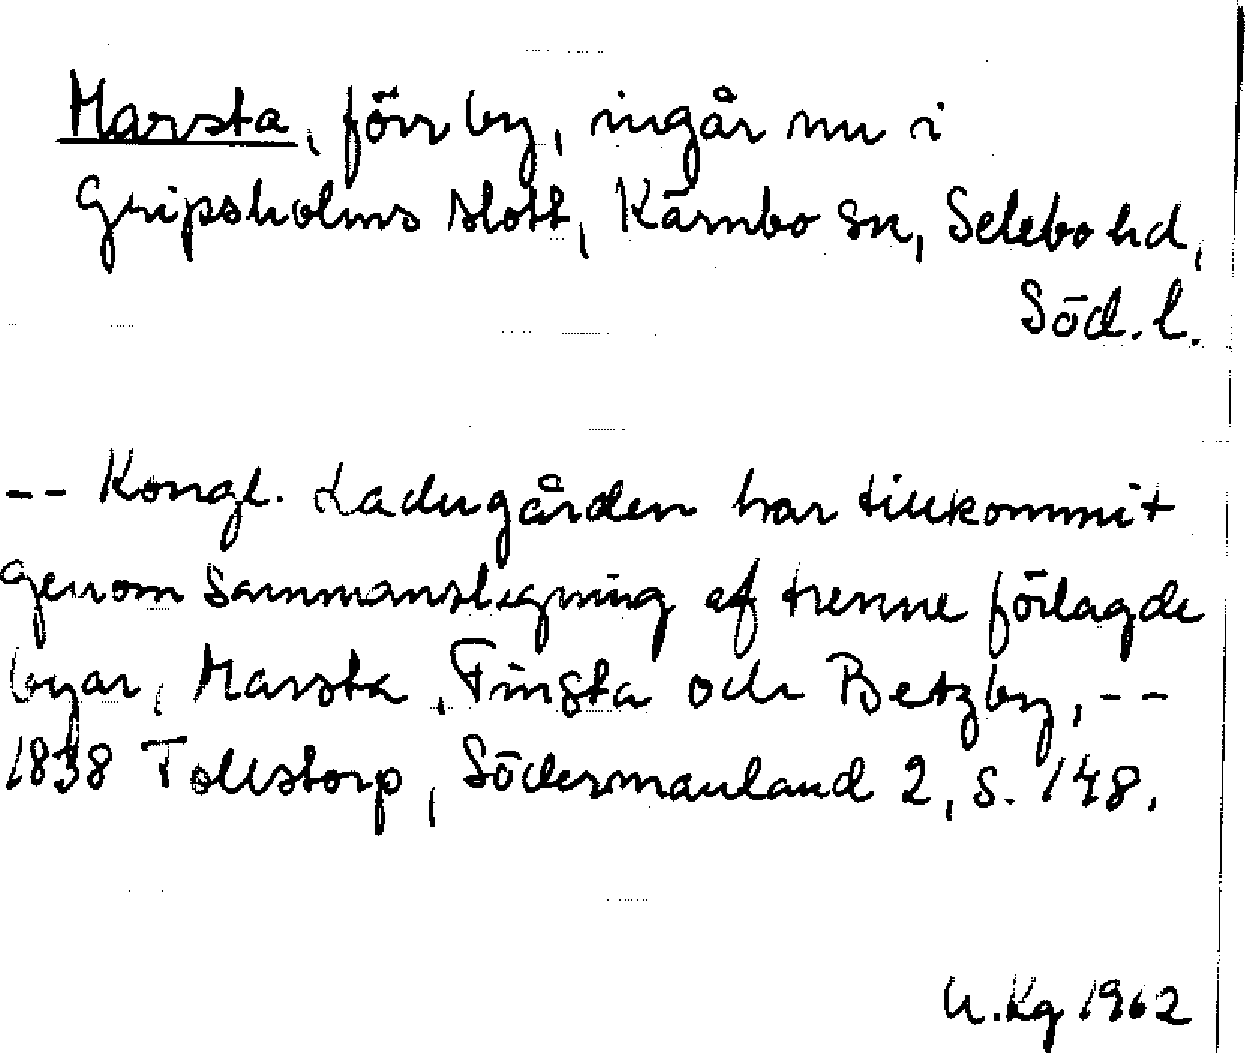 Marsta, förr by, ingår nu i
Gripsholms slott, Kärnbo sn, Selebo hd,
Söd. l.
-- Kongl. Ladugården har tillkommit
genom sammanslagning af trenne förlagde
byar, Marsta, Tingsta och Betzby, --
1838 Tollstorp, Södermanland 2, s. 148.
U. Kg 1962